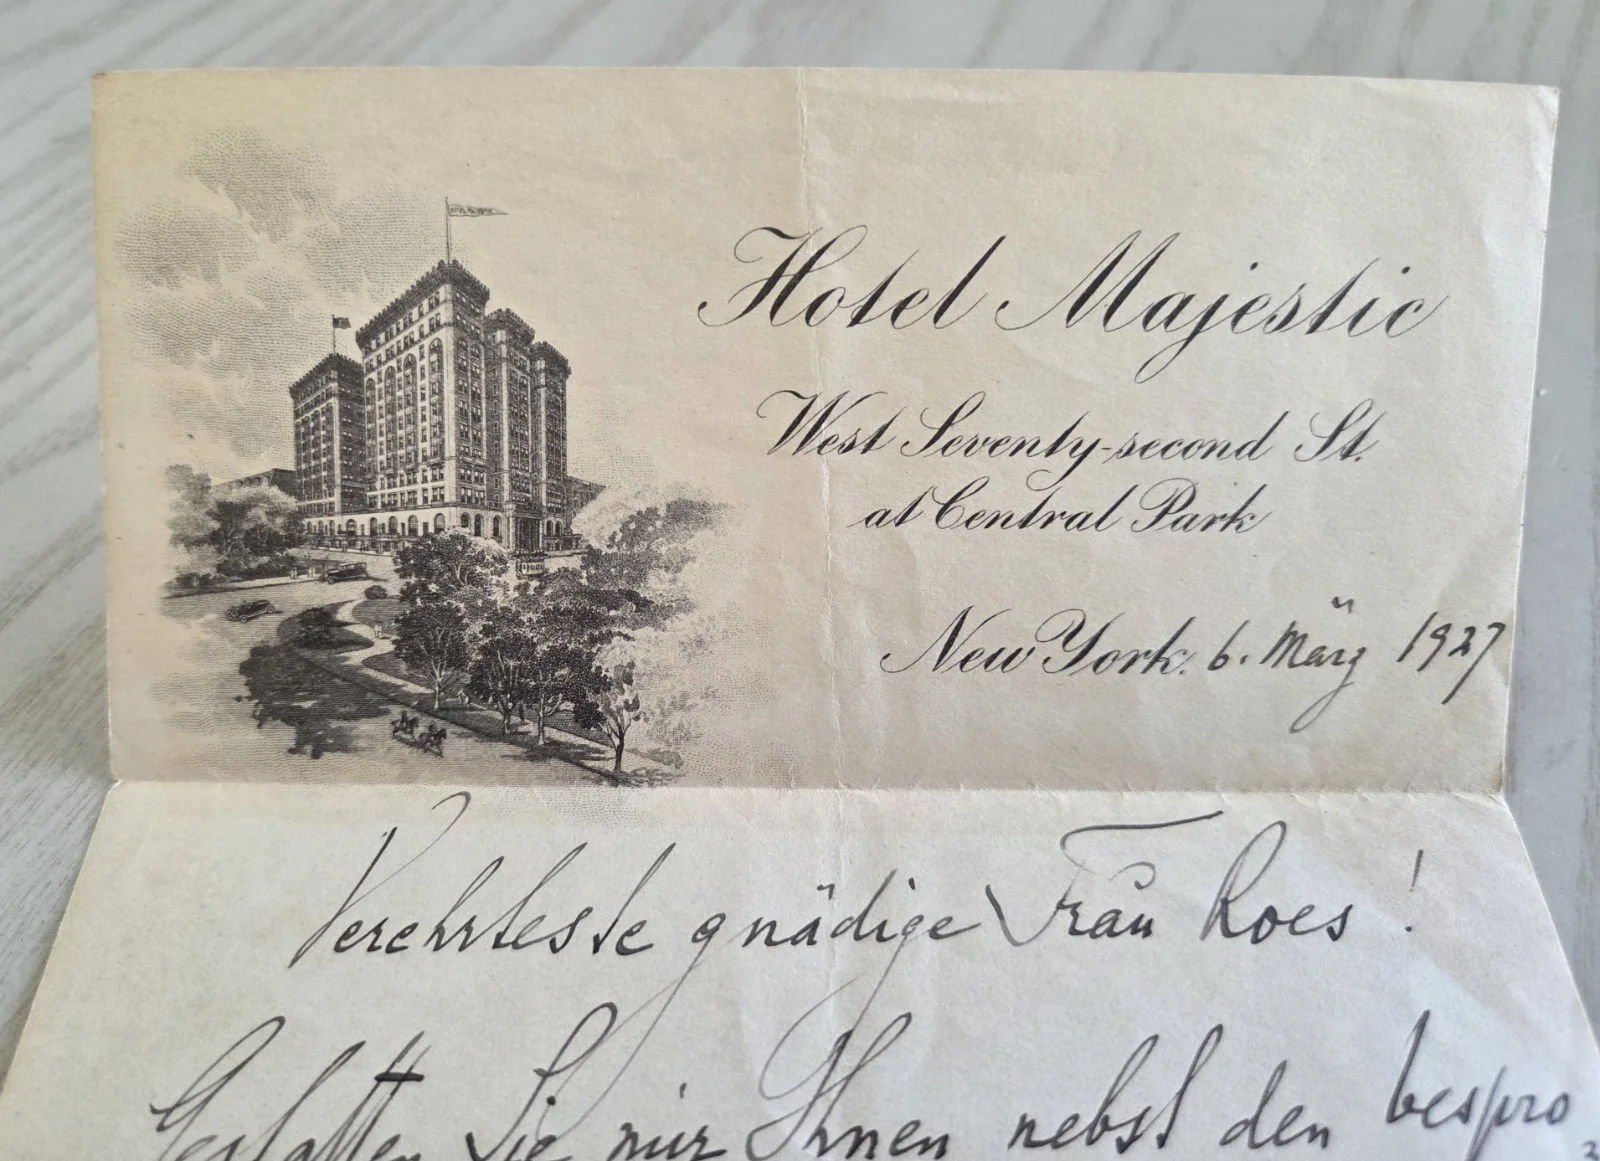 HOTEL MAJESTIC
Hotel Majestic
West Seventy-second St.
at Central Park
New York. 6. März 1927
Verehrteste gnädige Frau Loes!
Gestatten Sie mir Ihnen nebst den bespro